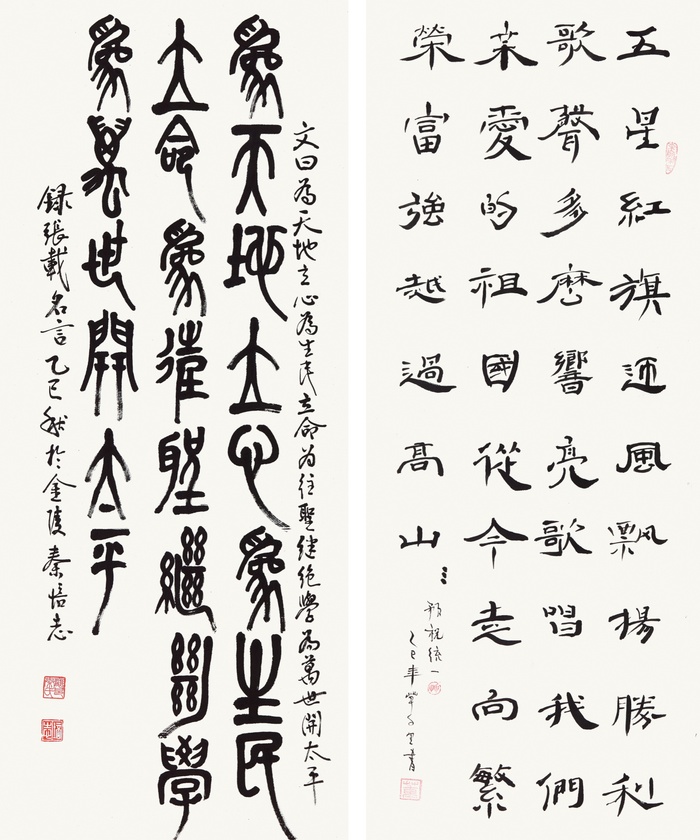 五星紅旗迎風飘揚勝利
歌聲多麽響亮歌唱我們
亲愛的祖國從今走向繁
榮富強越過高山
預祝統一
乙巳年
文曰為天地立心為生民立命为往聖继绝學為萬世開太平
為天地立心為生民
立命為往聖繼絕學
為萬世開太平
録張載名言乙巳秋於金陵秦